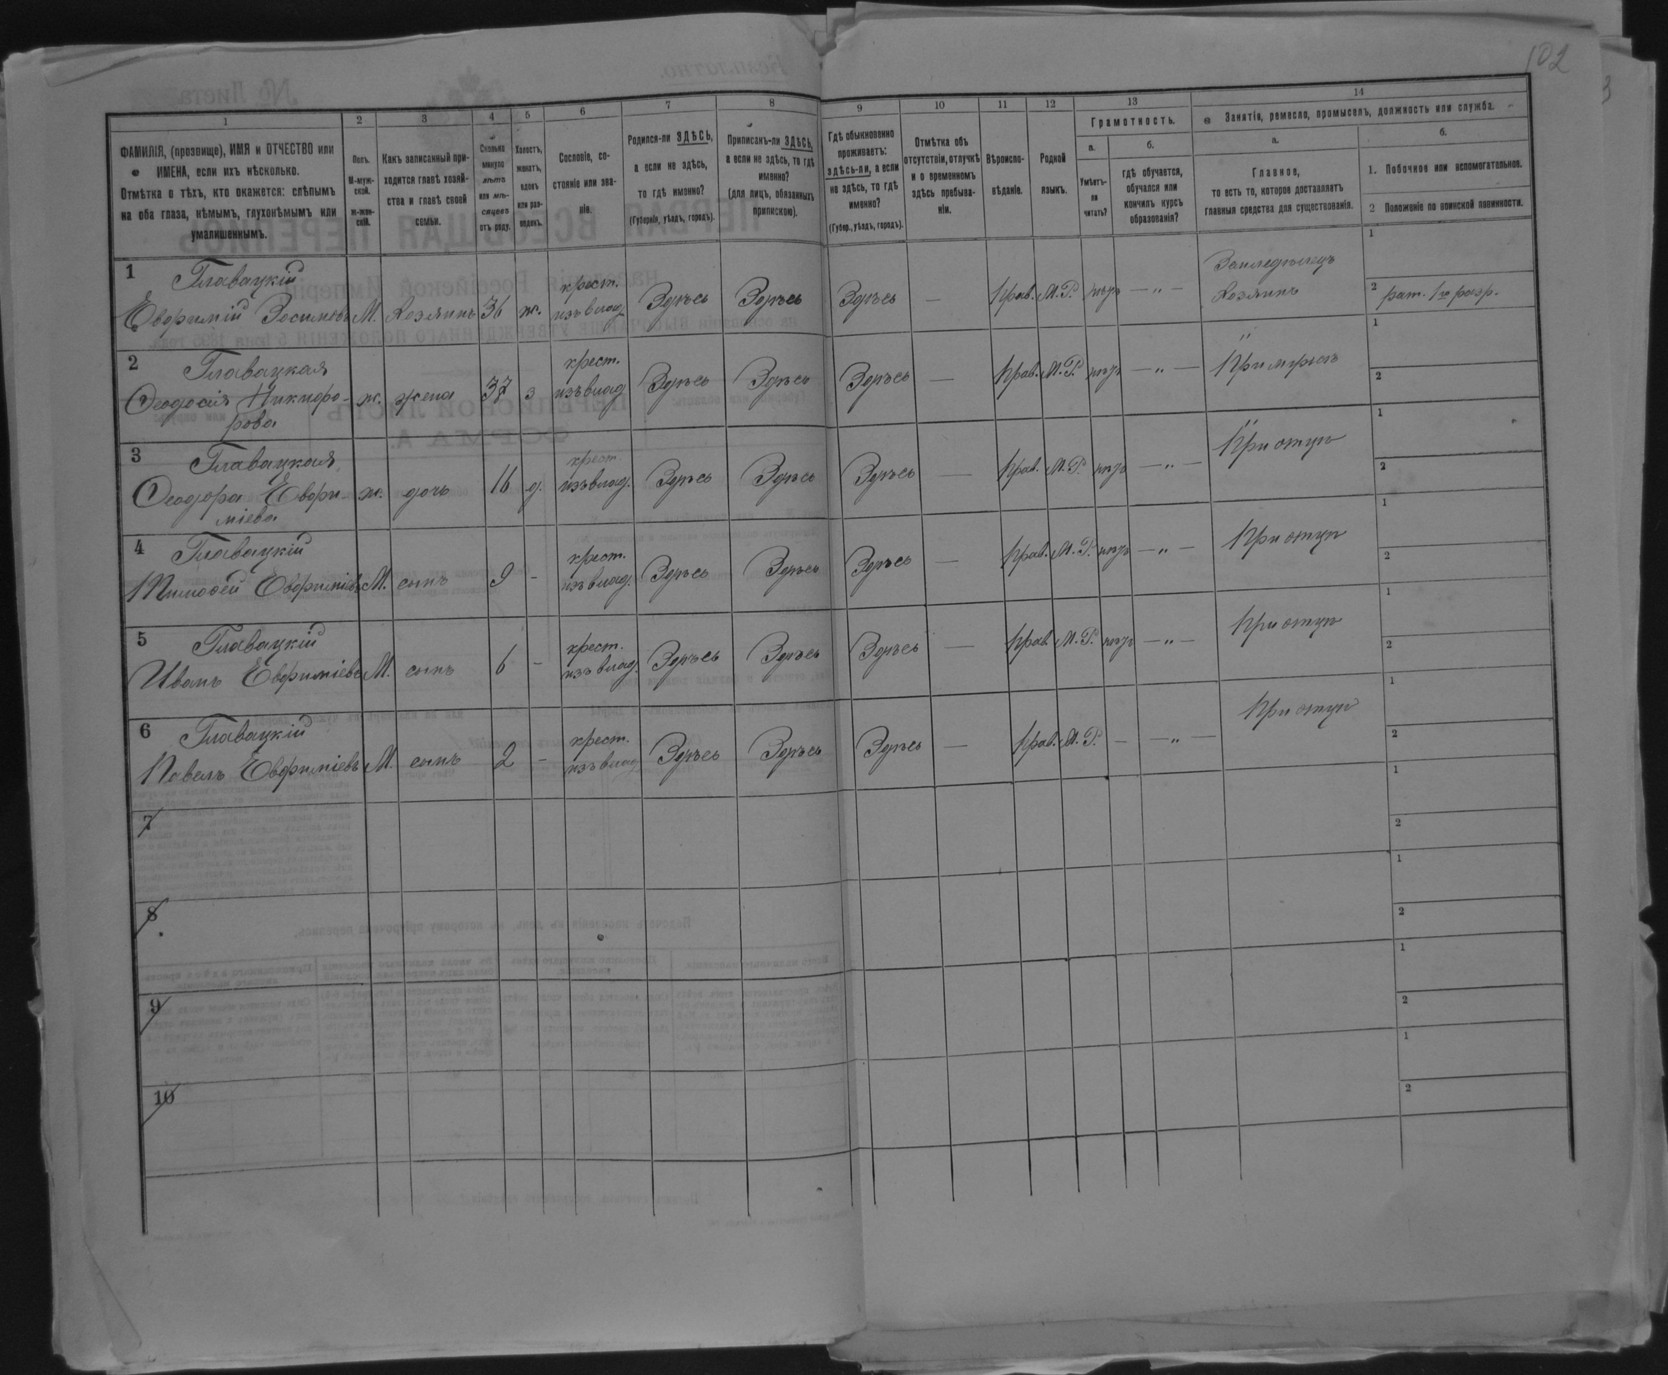 102
1
2
3
4
5
6
7
8
9
10
11
12
13
14
ФАМИЛІЯ, (прозвище), ИМЯ и ОТЧЕСТВО или
ИМЕНА, если ихъ нѣсколько.
Отмѣтка о тѣхъ, кто окажется: слѣпымъ
на оба глаза, нѣмымъ, глухонѣмымъ или
умалишеннымъ.
Полъ.
М-муж-
ской.
ж-жен-
скій.
Какъ записанный при-
ходится главѣ хозяй-
ства и главѣ своей
семьи.
Сколько
минуло
лѣтъ
или мѣ-
сяцевъ
отъ роду.
Холостъ,
женатъ,
вдовъ
или раз-
веденъ.
Сословіе, со-
стояніе или зва-
ніе.
Родился-ли ЗДѢСЬ,
а если не здѣсь,
то гдѣ именно?
(Губернія, уѣздъ, городъ).
Приписанъ-ли ЗДѢСЬ,
а если не здѣсь, то гдѣ
именно?
(для лицъ, обязанныхъ
припискою).
Гдѣ обыкновенно
проживаетъ:
здѣсь-ли, а если
не здѣсь, то гдѣ
именно?
(Губер., уѣздъ, городъ).
Отмѣтка объ
отсутствіи, отлучкѣ
и о временномъ
здѣсь пребыва-
ніи.
Вѣроиспо-
вѣданіе.
Родной
языкъ.
Грамотность.
а.
б.
Умѣетъ-
ли
читать?
гдѣ обучается,
обучался или
кончилъ курсъ
образованія?
Занятіе, ремесло, промыселъ, должность или служба.
а.
б.
Главное,
то есть то, которое доставляетъ
главныя средства для существованія.
1. Побочное или вспомогательное.
2 Положеніе по воинской повинности.
1 Главацкій
Евфимій Зосимовъ М. Хозяинъ 36 ж. крест. изъ влад. Здѣсь Здѣсь Здѣсь — Прав. М.Р. нѣтъ — „ — Земледѣлецъ Хозяинъ 1
2 рат. 1го разр.
2 Главацкая
Феодосія Никифо-
рова ж. жена 37 з крест. изъ влад. Здѣсь Здѣсь Здѣсь — Прав. М.Р. нѣтъ — „ — При мужѣ 1
2
3 Главацкая
Феодора Евфи-
міева ж. дочь 16 д. крест изъ влад. Здѣсь Здѣсь Здѣсь — Прав. М.Р. нѣтъ — „ — При отцѣ 1
2
4 Главацкій
Тимофей Евфиміевъ М. сынъ 9 - крест. изъ влад. Здѣсь Здѣсь Здѣсь — Прав. М.Р. нѣтъ — „ — При отцѣ 1
2
5 Главацкій
Иванъ Евфиміевъ М. сынъ 6 - крест. изъ влад. Здѣсь Здѣсь Здѣсь — Прав. М.Р. нѣтъ — „ — При отцѣ 1
2
6 Главацкій
Павелъ Евфиміевъ М. сынъ 2 - крест. изъ влад Здѣсь Здѣсь Здѣсь — Прав. М.Р. — — „ — При отцѣ 1
2
7 1
2
8 1
2
9 1
2
10 1
2